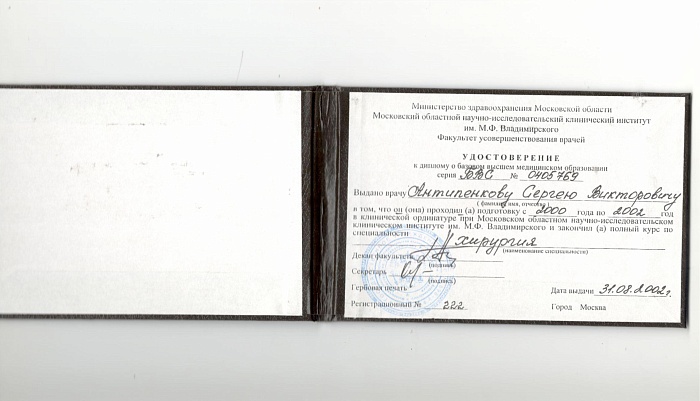 Министерство здравоохранения Московской области
Московский областной научно-исследовательский клинический институт
им. М.Ф. Владимирского
Факультет усовершенствования врачей
УДОСТОВЕРЕНИЕ
к диплому о базовом высшем медицинском образовании
серия БВС № 0405769
Выдано врачу Антипенкову Сергею Викторовичу
( фамилия, имя, отчество )
в том, что он (она) проходил (а) подготовку с 2000 года по 2002 год
в клинической ординатуре при Московском областном научно-исследовательском
клиническом институте им. М.Ф. Владимирского и закончил (а) полный курс по
специальности хирургия
(наименование специальности)
Декан факультета
(подпись)
Секретарь
(подпись)
Гербовая печать
Дата выдачи 31.08.2002г.
Регистрационный № 222
Город Москва